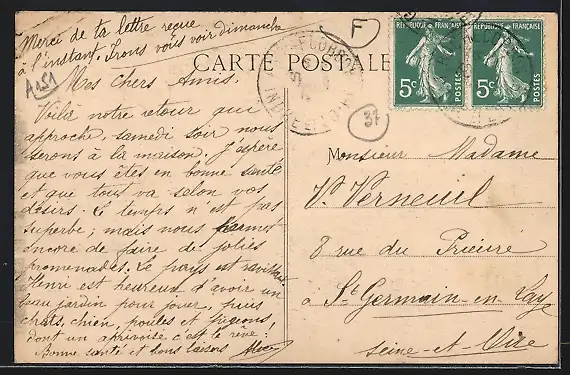 Merci de ta lettre reçue
à l'instant. Irons vous voir dimanche
F
A151
CARTE POSTALE
INDRE
37
RÉPUBLIQUE FRANÇAISE
5c
POSTES
RÉPUBLIQUE FRANÇAISE
5c
POSTES
Mes chers Amis,
Voilà notre retour qui
approche, samedi soir nous
serons à la maison. J'espère
que vous êtes en bonne santé
et que tout va selon vos
désirs. Le temps n'est pas
superbe; mais nous permet
encore de faire de jolies
promenades. Le pays est ravissant.
Henri est heureux d'avoir un
beau jardin pour jouer, puis
chats, chien, poules et pigeons,
dont un apprivoisé c'est le rêve!
Bonne santé et bons baisers
Monsieur Madame
V. Verneuil
8 rue du Prieuré
à St Germain-en-Laye
Seine-et-Oise